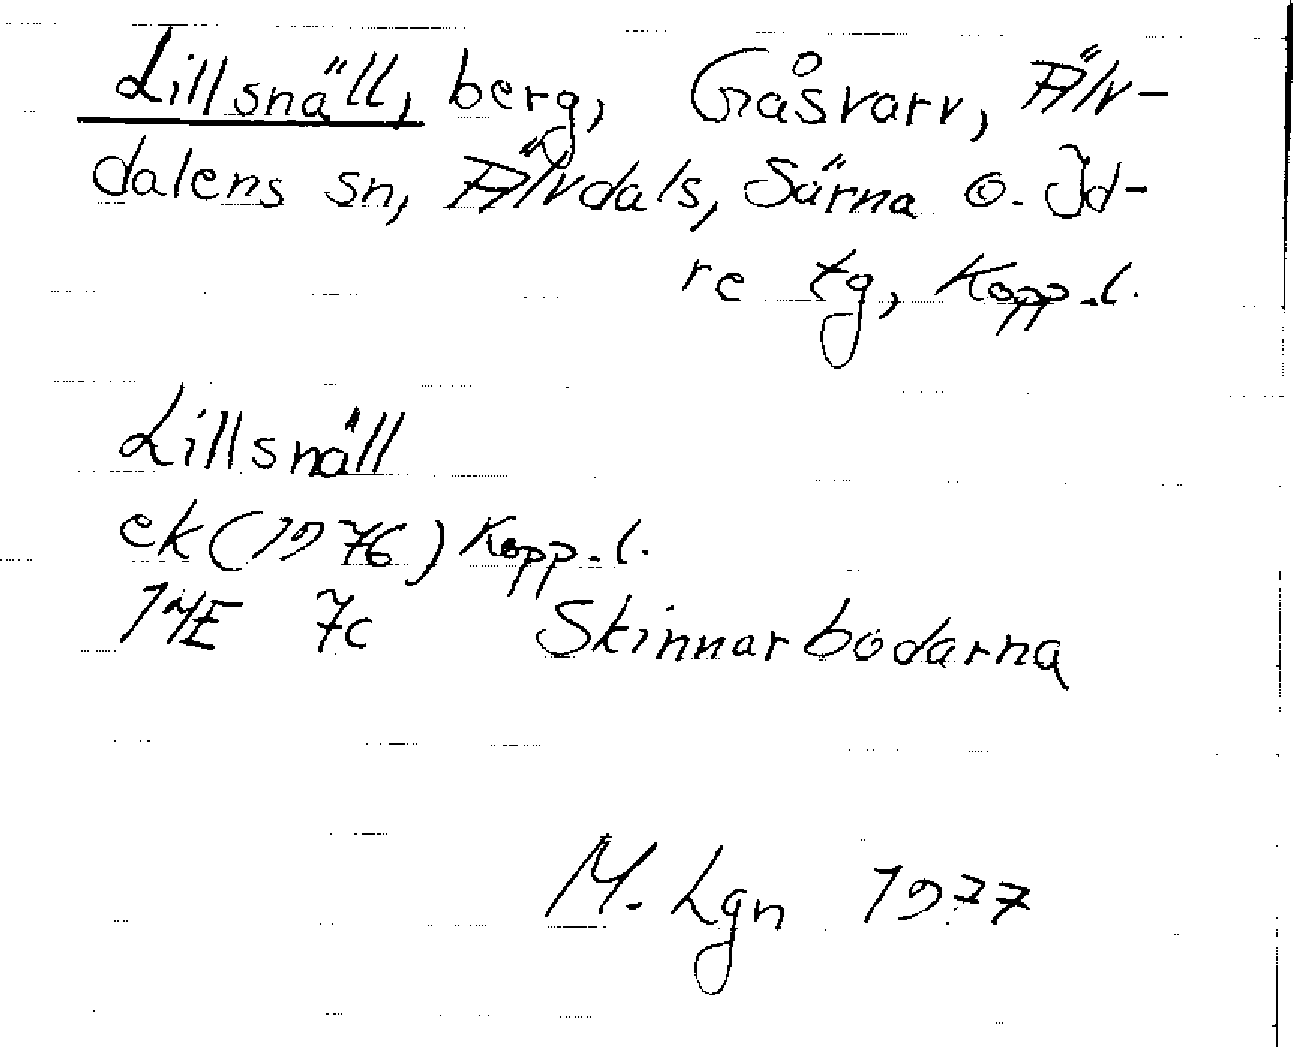 Lillsnäll, berg, Gåsvarv, Älv-
dalens sn, Älvdals, Särna o. Id-
re tg, Kopp.l.
Lillsnäll
ek (1976) Kopp.l.
14E 7c Skinnarbodarna
M. Lgn 1977